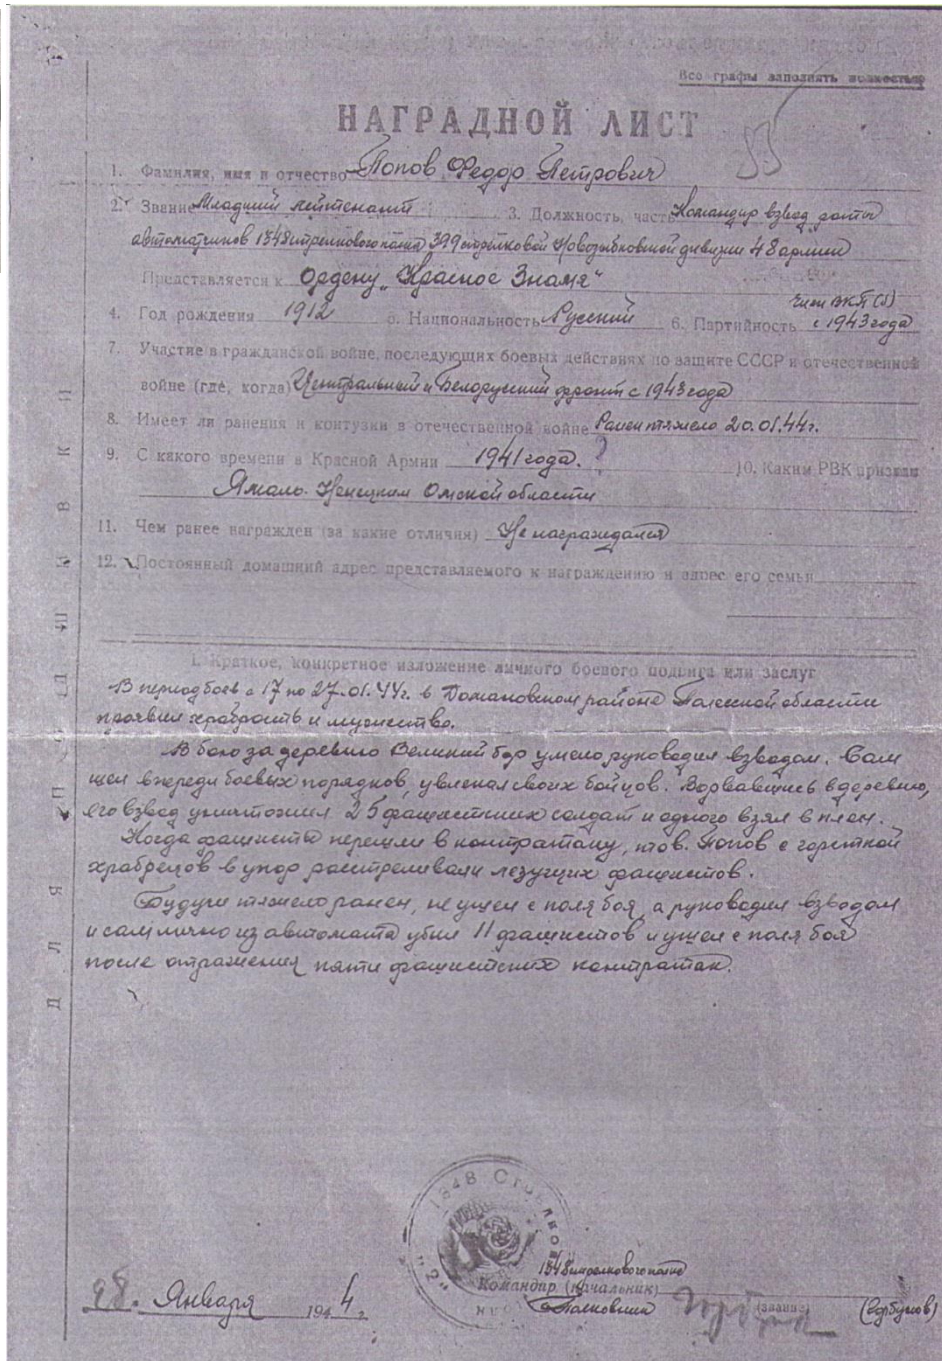 Все графы заполнять полностью
НАГРАДНОЙ ЛИСТ
1. Фамилия, имя и отчество Попов Федор Петрович
2. Звание Младший лейтенант 3. Должность, часть Командир взвода роты
автоматчиков 1348 стрелкового полка 399 стрелковой Новозыбковской дивизии 48 армии
Представляется к Ордену „Красное Знамя"
4. Год рождения 1912 5. Национальность Русский 6. Партийность член ВКП(б)
с 1943 года
7. Участие в гражданской войне, последующих боевых действиях по защите СССР и отечественной
войне (где, когда) Центральный и Белорусский фронт с 1943 года
8. Имеет ли ранения и контузии в отечественной войне Ранен тяжело 20.01.44г.
9. С какого времени в Красной Армии 1941 года. ? 10. Каким РВК призван
Ямало-Ненецким Омской области
11. Чем ранее награжден (за какие отличия) Не награждался
12. Постоянный домашний адрес представляемого к награждению и адрес его семьи
I. Краткое, конкретное изложение личного боевого подвига или заслуг
В период боев с 17 по 27.01.44г. в Домановском районе Полесской области
проявил храбрость и мужество.
В бою за деревню Великий бор умело руководил взводом. Сам
шел впереди боевых порядков, увлекая своих бойцов. Ворвавшись в деревню,
его взвод уничтожил 25 фашистских солдат и одного взял в плен.
Когда фашисты перешли в контратаку, тов. Попов с горсткой
храбрецов в упор расстреливали лезущих фашистов.
Будучи тяжело ранен, не ушел с поля боя, а руководил взводом
и сам лично из автомата убил 11 фашистов и ушел с поля боя
после отражения пяти фашистских контратак.
ДЛЯ ПОДШИВКИ
1348 Стрелков
1348 стрелкового полка
Командир (начальник)
Полковник (звание) (Горбунов)
28. Января 1944 г.